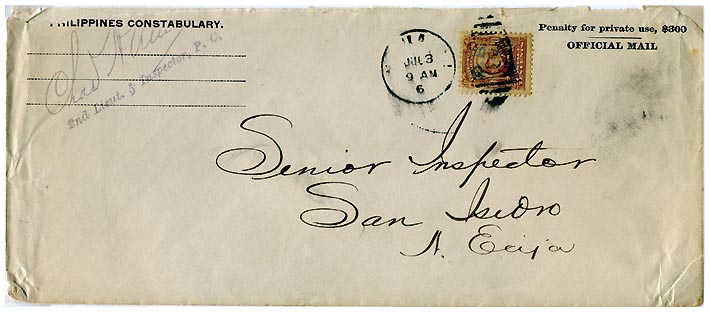 PHILIPPINES CONSTABULARY.
Penalty for private use, $300
OFFICIAL MAIL
2nd Lieut. & Inspector, P. C.
JUL 3
9 AM
6
Senior Inspector
San Isidro
N. Ecija